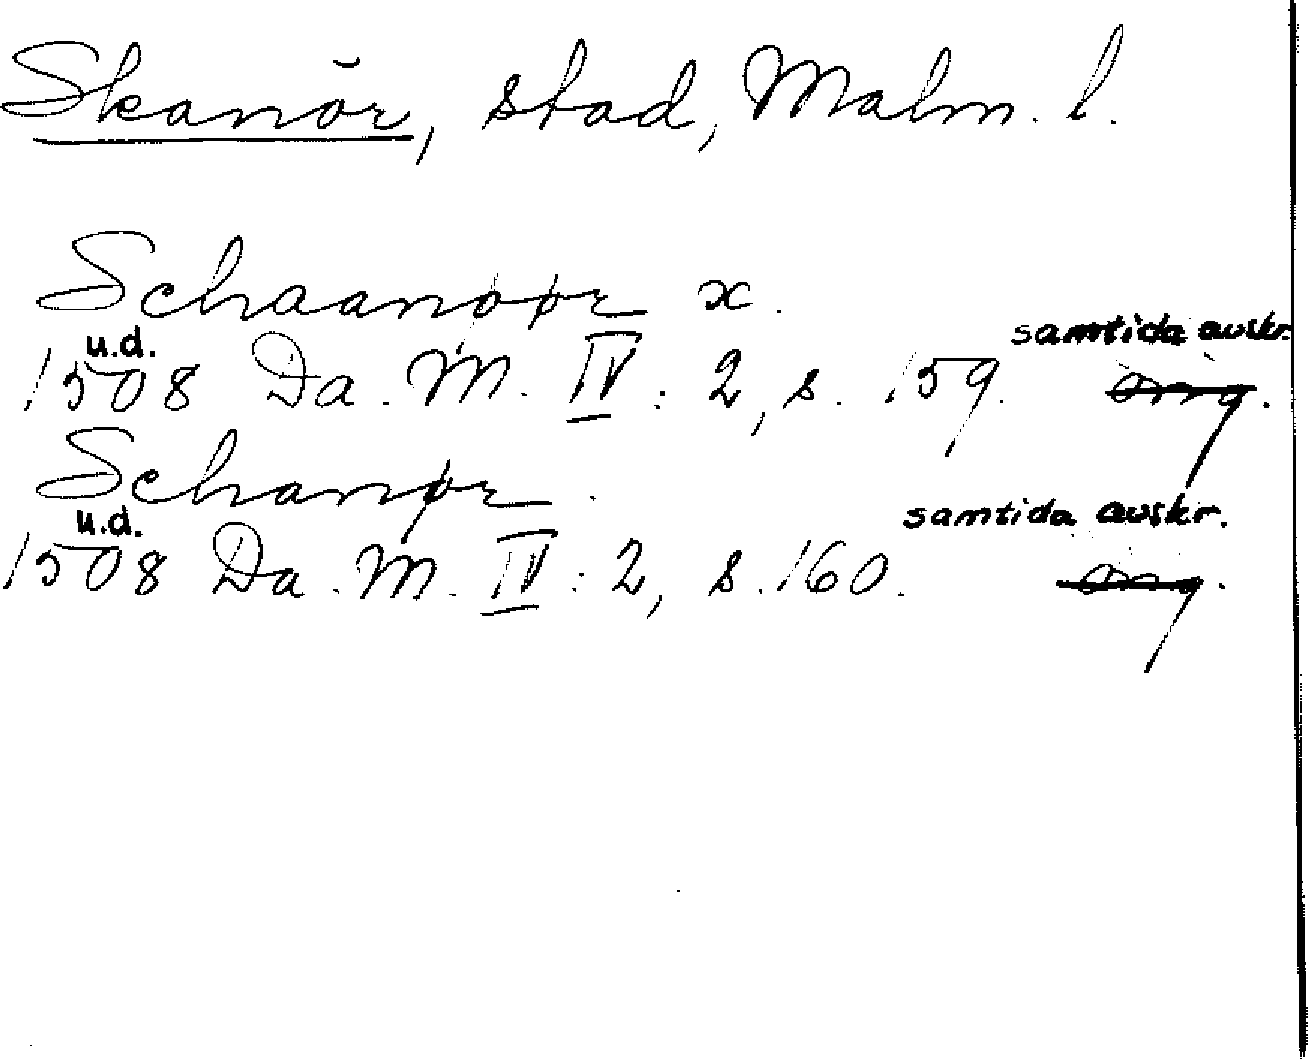 Skanör, stad, Malm. l.
Schaanøør x.
u.d. samtida avskr.
1508 Da. M. IV: 2, s. 159. orig.
Schanør.
u.d. samtida avskr.
1508 Da. M. IV: 2, s. 160. orig.